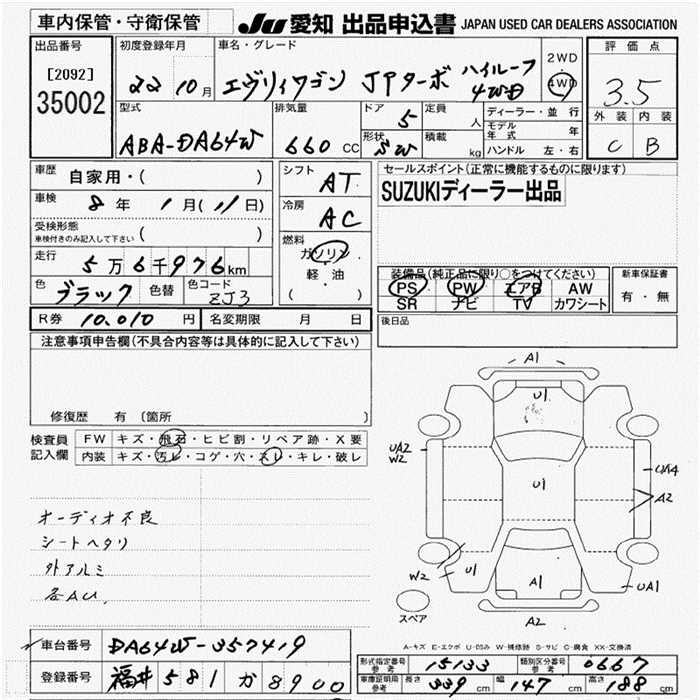 車内保管・守衛保管
JU 愛知 出品申込書 JAPAN USED CAR DEALERS ASSOCIATION
出品番号 初度登録年月 車名・グレード 評価点
[2092] 2WD
35002 22 10月 エヴリィワゴン JPターボ ハイルーフ 4WD 4WD 3.5
型式 排気量 ドア 定員 ディーラー・並行 外装 内装
5 人 モデル年式 年
ABA-DA64W 660 CC 形状 SW 積載 kg ハンドル 左・右 C B
車歴 自家用・( ) シフト AT セールスポイント(正常に機能するものに限ります)
車検 8年 1月(11日) 冷房 AC SUZUKIディーラー出品
受検形態 車検付きのみ記入して下さい ( )
燃料 ガソリン
走行 5万6千976km 軽・油 装備品(純正品に限り○をつけてください) 新車保証書
色 ブラック 色替 色コード ZJ3 ( ) PS PW エアB AW 有・無
SR ナビ TV カワシート
R券 10.010円 名変期限 月 日 後日品
注意事項申告欄(不具合内容等は具体的に記入して下さい)
修復歴 有 (箇所
検査員 FW キズ・飛石・ヒビ割・リペア跡・X要
記入欄 内装 キズ・汚レ・コゲ・穴・スレ・キレ・破レ
オーディオ不良
シートヘタリ
外アルミ
各AU.
A1
U1
UA2
W2
U1
UA4
A2
W2
U1
A1
UA1
スペア
A2
A-キズ E-エクボ U-凹み W-補修跡 S-サビ C-腐食 XX-交換済
車台番号 DA64W-357419
登録番号 福井 581 か 8900
形式指定番号 参考 15133 類別区分番号 参考 0667
車庫証明用 参考 長さ 339cm 幅 147cm 高さ 188cm